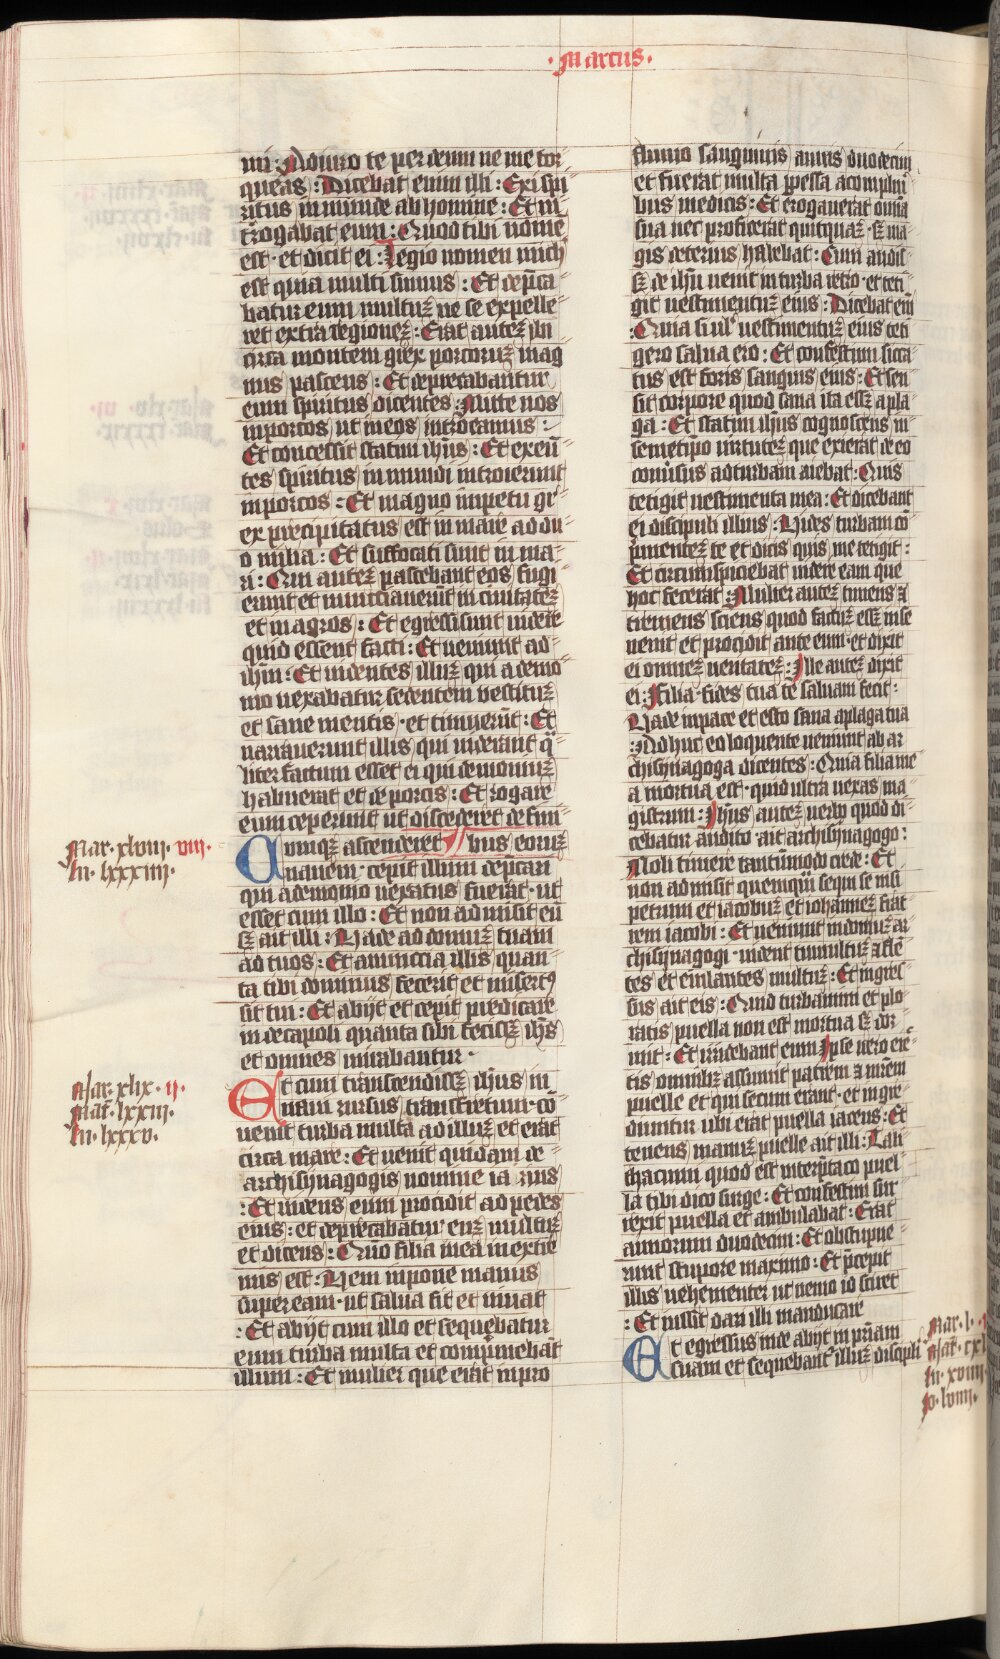 · Marcus ·
mi : Adiuro te per deum ne me tor
queas : Dicebat enim illi : Exi spi
ritus inmunde ab homine : Et in
t̄rogabat eum : Quod tibi nomē
est · et dicit ei : Legio nomen mich
est quia multi sumus : Et dep̄ca
batur eum multuꝫ ne se expelle
ret extra regioneꝫ : Erat auteꝫ ibi
circa montem grex porcoruꝫ mag
nus pascens : Et deprecabantur
eum spiritus dicentes : Mitte nos
inporcos ut ineos introeamus :
Et concessit statim ihūs : Et exeūn
tes spiritus inmundi introierunt
inporcos : Et magno inpetu gr
ex precipitatus est in mare ad du
o milia : Et suffocati sunt in ma
ri : Qui auteꝫ pascebant eos fugi
erunt et nunciauerūt in ciuitateꝫ
et in agros : Et egressi sunt uidere
quid essent facti : Et ueniunt ad
ihm̄ : Et uident illuꝫ qui a demo
nio uexabatur sedentem uestituꝫ
et sane mentis · et timuerūt : Et
narrauerunt illis qui uiderant q̄
liter factum esset ei qui demoniuꝫ
habuerat et de porcis : Et rogare
eum ceperunt ut discederet de fini
Cumqꝫ ascenderet bus eoruꝫ
nauem · cepit illum dep̄cari
qui ademonio uexatus fuerat · ut
esset cum illo : Et non admisit eū
sꝫ ait illi : Uade ad domuꝫ tuam
ad tuos : Et annuncia illis quan
ta tibi dominus fecerit et misertꝰ
sit tui : Et abijt et cepit predicare
in decapoli quanta sibi fecissꝫ ihūs
et omnes mirabantur ·
Et cum transcendissꝫ ihūs in
naui rursus transfretum · cō
uenit turba multa ad illuꝫ et erat
circa mare : Et uenit quidam de
archisynagogis nomine iairus
: Et uidens eum procidit ad pedes
eius : et deprecabatur euꝫ multuꝫ
et dicens : Quo filia mea in extre
mis est : Ueni inpone manus
super eam · ut salua sit et uiuat
: Et abijt cum illo et sequebatur
eum turba multa et comprimebāt
illum : Et mulier que erat inpro
Mar · xlviii · viii ·
lu · lxxxiiii ·
Mar · xlix · ii ·
Mat̄ · lxxiii ·
lu · lxxxv ·
fluuio sanguinis annis duodecim
et fuerat multa ꝑpessa a complurī
bus medicis : Et erogauerat omnia
sua nec profecerat quitquaꝫ · sꝫ ma
gis deterius habebat : Cum audis
sꝫ de ihū uenit in turba retro · et teti
git uestimentuꝫ eius : Dicebat em̄
: Quia si ul̄ uestimentuꝫ eius teti
gero salua ero : Et confestim sicca
tus est fons sanguis eius : Et sen
sit corpore quod sana ita essꝫ a pla
ga : Et statim ihūs cognoscens in
semetip̄o uirtuteꝫ que exierat de eo
conuersus ad turbam aiebat : Quis
tetigit uestimenta mea : Et dicebant
ei discipuli illius : Uides turbam cō
p̄menteꝫ te et dicis quis me tetigit :
Et circumspiciebat uidere eam que
hoc fecerat : Mulier auteꝫ timens ꝫ
tremens sciens quod factuꝫ essꝫ in se
uenit et procidit ante eum · et dixit
ei omneꝫ ueritateꝫ : Ille auteꝫ dixit
ei : Filia · fides tua te saluam fecit :
Uade inpace et esto sana aplaga tua
: Adhuc eo loquente ueniunt ab ar
chisynagoga dicentes : Quia filia me
a mortua est · quid ultra uexas ma
gistrum : Ihūs auteꝫ uerbo quod di
cebatur audito · ait archisynagogo :
Noli timere tantūmodo crede : Et
non admisit quemquā sequi se nisi
petrum et iacobuꝫ et iohanneꝫ frat
rem iacobi : Et ueniunt indomuꝫ ar
chisynagogi · uident tumultuꝫ ꝫ fle
tes et eiulantes multuꝫ : Et ingres
sus ait eis : Quid turbamini et plo
ratis puella non est mortua sꝫ dor
mit : Et irridebant eum Ipse uero eie
tis omnibꝫ assumit patrem ꝫ mr̄em
puelle et qui secum erant · et ingre
diuntur ubi erat puella iacens : Et
tenens manuꝫ puelle ait illi : Tali
thacumi quod est interp̄taco puel
la tibi dico surge : Et confestim sur
rexit puella et ambulabat : Erat
annorum duodecim : Et obstupue
runt stupore maximo : Et p̄cepit
illis uehementer ut nemo id sciret
: Et iussit dari illi manducare
Et egressus inde abijt in p̄riam
suam et sequebant᷑ illuꝫ discipli
Mar · l ·
Mat̄ · cxl
lu · xviiii ·
Jo · lviiii ·